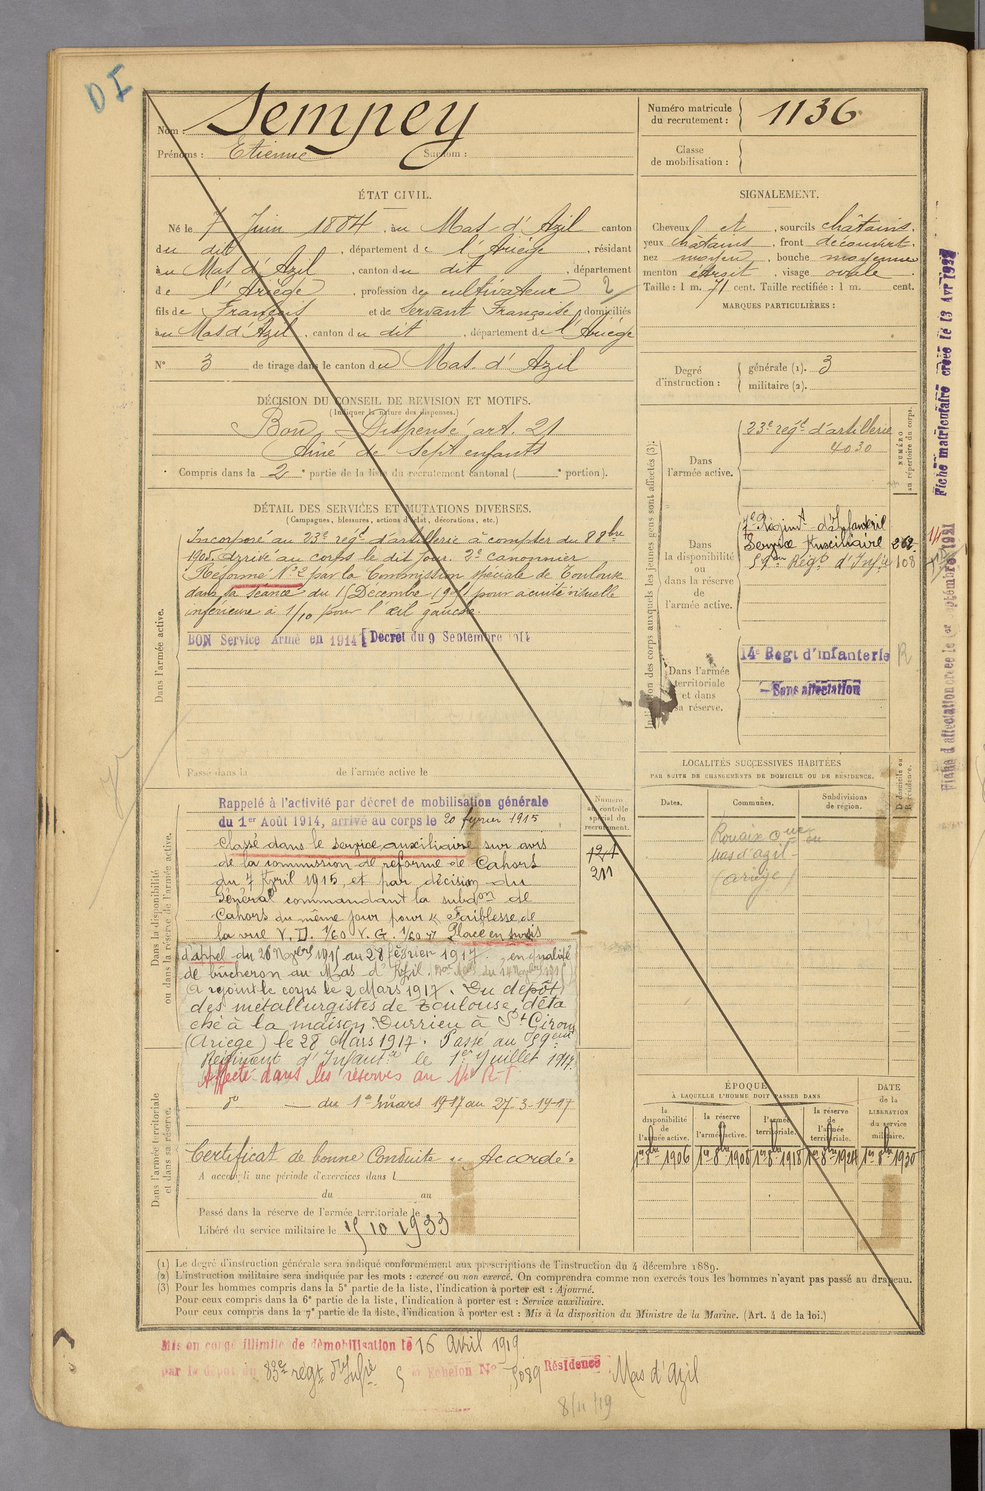 DI
Nom : Sempey
Prénoms : Etienne Surnom :
Numéro matricule du recrutement : 1136
Classe de mobilisation :
ÉTAT CIVIL.
Né le 7 Juin 1884, au Mas d'Azil canton
du dit, département de l'Ariège, résidant
au Mas d'Azil, canton du dit, département
de l'Ariège, profession de cultivateur 2
fils de François et de Servant Françoise, domiciliés
au Mas d'Azil, canton du dit, département de l'Ariège
N° 3 de tirage dans le canton du Mas d'Azil
SIGNALEMENT.
Cheveux et, sourcils châtains.
yeux chatains, front découvert.
nez moyen, bouche moyenne
menton étroit, visage ovale
Taille : 1 m. 71 cent. Taille rectifiée : 1 m. cent.
MARQUES PARTICULIÈRES :
Degré d'instruction :
générale (1). 3
militaire (2).
DÉCISION DU CONSEIL DE REVISION ET MOTIFS.
(Indiquer la nature des dispenses.)
Bon, Dispensé art. 21
Ainé de sept enfants
Compris dans la 2e partie de la liste du recrutement cantonal ( e portion).
DÉTAIL DES SERVICES ET MUTATIONS DIVERSES.
(Campagnes, blessures, actions d'éclat, décorations, etc.)
Dans l'armée active.
Incorporé au 23e régt d'artillerie à compter du 8 8bre
1905. Arrivé au corps le dit jour. 2e canonnier
Réformé N° 2 par la Commission spéciale de Toulouse
dans sa séance du Décembre pour acuité visuelle
inférieure à 1/10 pour l'œil gauche.
BON Service Armé en 1914 Décret du 9 Septembre 1914
Passé dans la de l'armée active le
Dans la disponibilité ou dans la réserve de l'armée active.
Rappelé à l'activité par décret de mobilisation générale
du 1er Août 1914, arrivé au corps le 20 fevrier 1915
Classé dans le service auxiliaire sur avis
de la commission de réforme de Cahors
du 7 Avril 1915, et par décision du
Général commandant la subdon de
Cahors du même jour pour « Faiblesse de
la vue V. D. 1/60 V. G. 1/60 » Place en sursis
d'appel du 26 Nbre 1915 au 28 Février 1917. en qualité
de bûcheron au Mas d'Azil.
A rejoint le corps le 2 Mars 1917. Du dépôt
des métallurgistes de Toulouse, déta
ché à la maison Durrieu à St Girons
(Ariège) le 28 Mars 1917. Passé au 59eme
Régiment d'Infantie le 1er Juillet 1917.
Affecté dans les réserves au 14e R.I.
Numéro au contrôle spécial du recrutement.
121
211
Dans l'armée territoriale et dans sa réserve.
do — du 1er mars 1917 au 27-3-1917
Certificat de bonne Conduite « Accordé »
A accompli une période d'exercices dans l
du au
Passé dans la réserve de l'armée territoriale le
Libéré du service militaire le 15 10 1933
Indication des corps auxquels les jeunes gens sont affectés (3).
NUMÉRO au répertoire du corps.
Dans l'armée active.
23e régt d'artillerie
4030
Dans la disponibilité ou dans la réserve de l'armée active.
7e Régimt d'Infanterie
Service Auxiliaire 262
59me Régt d'Infie 108
Dans l'armée territoriale et dans sa réserve.
14e Régt d'infanterie R
Sans affectation
LOCALITÉS SUCCESSIVES HABITÉES
PAR SUITE DE CHANGEMENTS DE DOMICILE OU DE RÉSIDENCE.
Dates. Communes. Subdivisions de région. D domicile ou R résidence.
mas d'azil
(ariège)
ÉPOQUE
À LAQUELLE L'HOMME DOIT PASSER DANS
la disponibilité de l'armée active.
la réserve de l'armée active.
l'armée territoriale.
la réserve de l'armée territoriale.
DATE de la LIBÉRATION du service militaire.
1er 8bre 1906 1er 8bre 1908 1er 8bre 1918 1er 8bre 1924 1er 8bre 1930
Fiche matriculaire créée le 13 Avr 1932
Fiche d'affectation créée le 1er Septembre 1921
(1) Le degré d'instruction générale sera indiqué conformément aux prescriptions de l'instruction du 4 décembre 1889.
(2) L'instruction militaire sera indiquée par les mots : exercé ou non exercé. On comprendra comme non exercés tous les hommes n'ayant pas passé au drapeau.
(3) Pour les hommes compris dans la 5e partie de la liste, l'indication à porter est : Ajourné.
Pour ceux compris dans la 6e partie de la liste, l'indication à porter est : Service auxiliaire.
Pour ceux compris dans la 7e partie de la liste, l'indication à porter est : Mis à la disposition du Ministre de la Marine. (Art. 4 de la loi.)
Mis en congé illimité de démobilisation le 16 Avril 1919
par le dépôt du 83e régt d'Infie 5 e Echelon N° 5089 Résidence Mas d'Azil
8/11/19